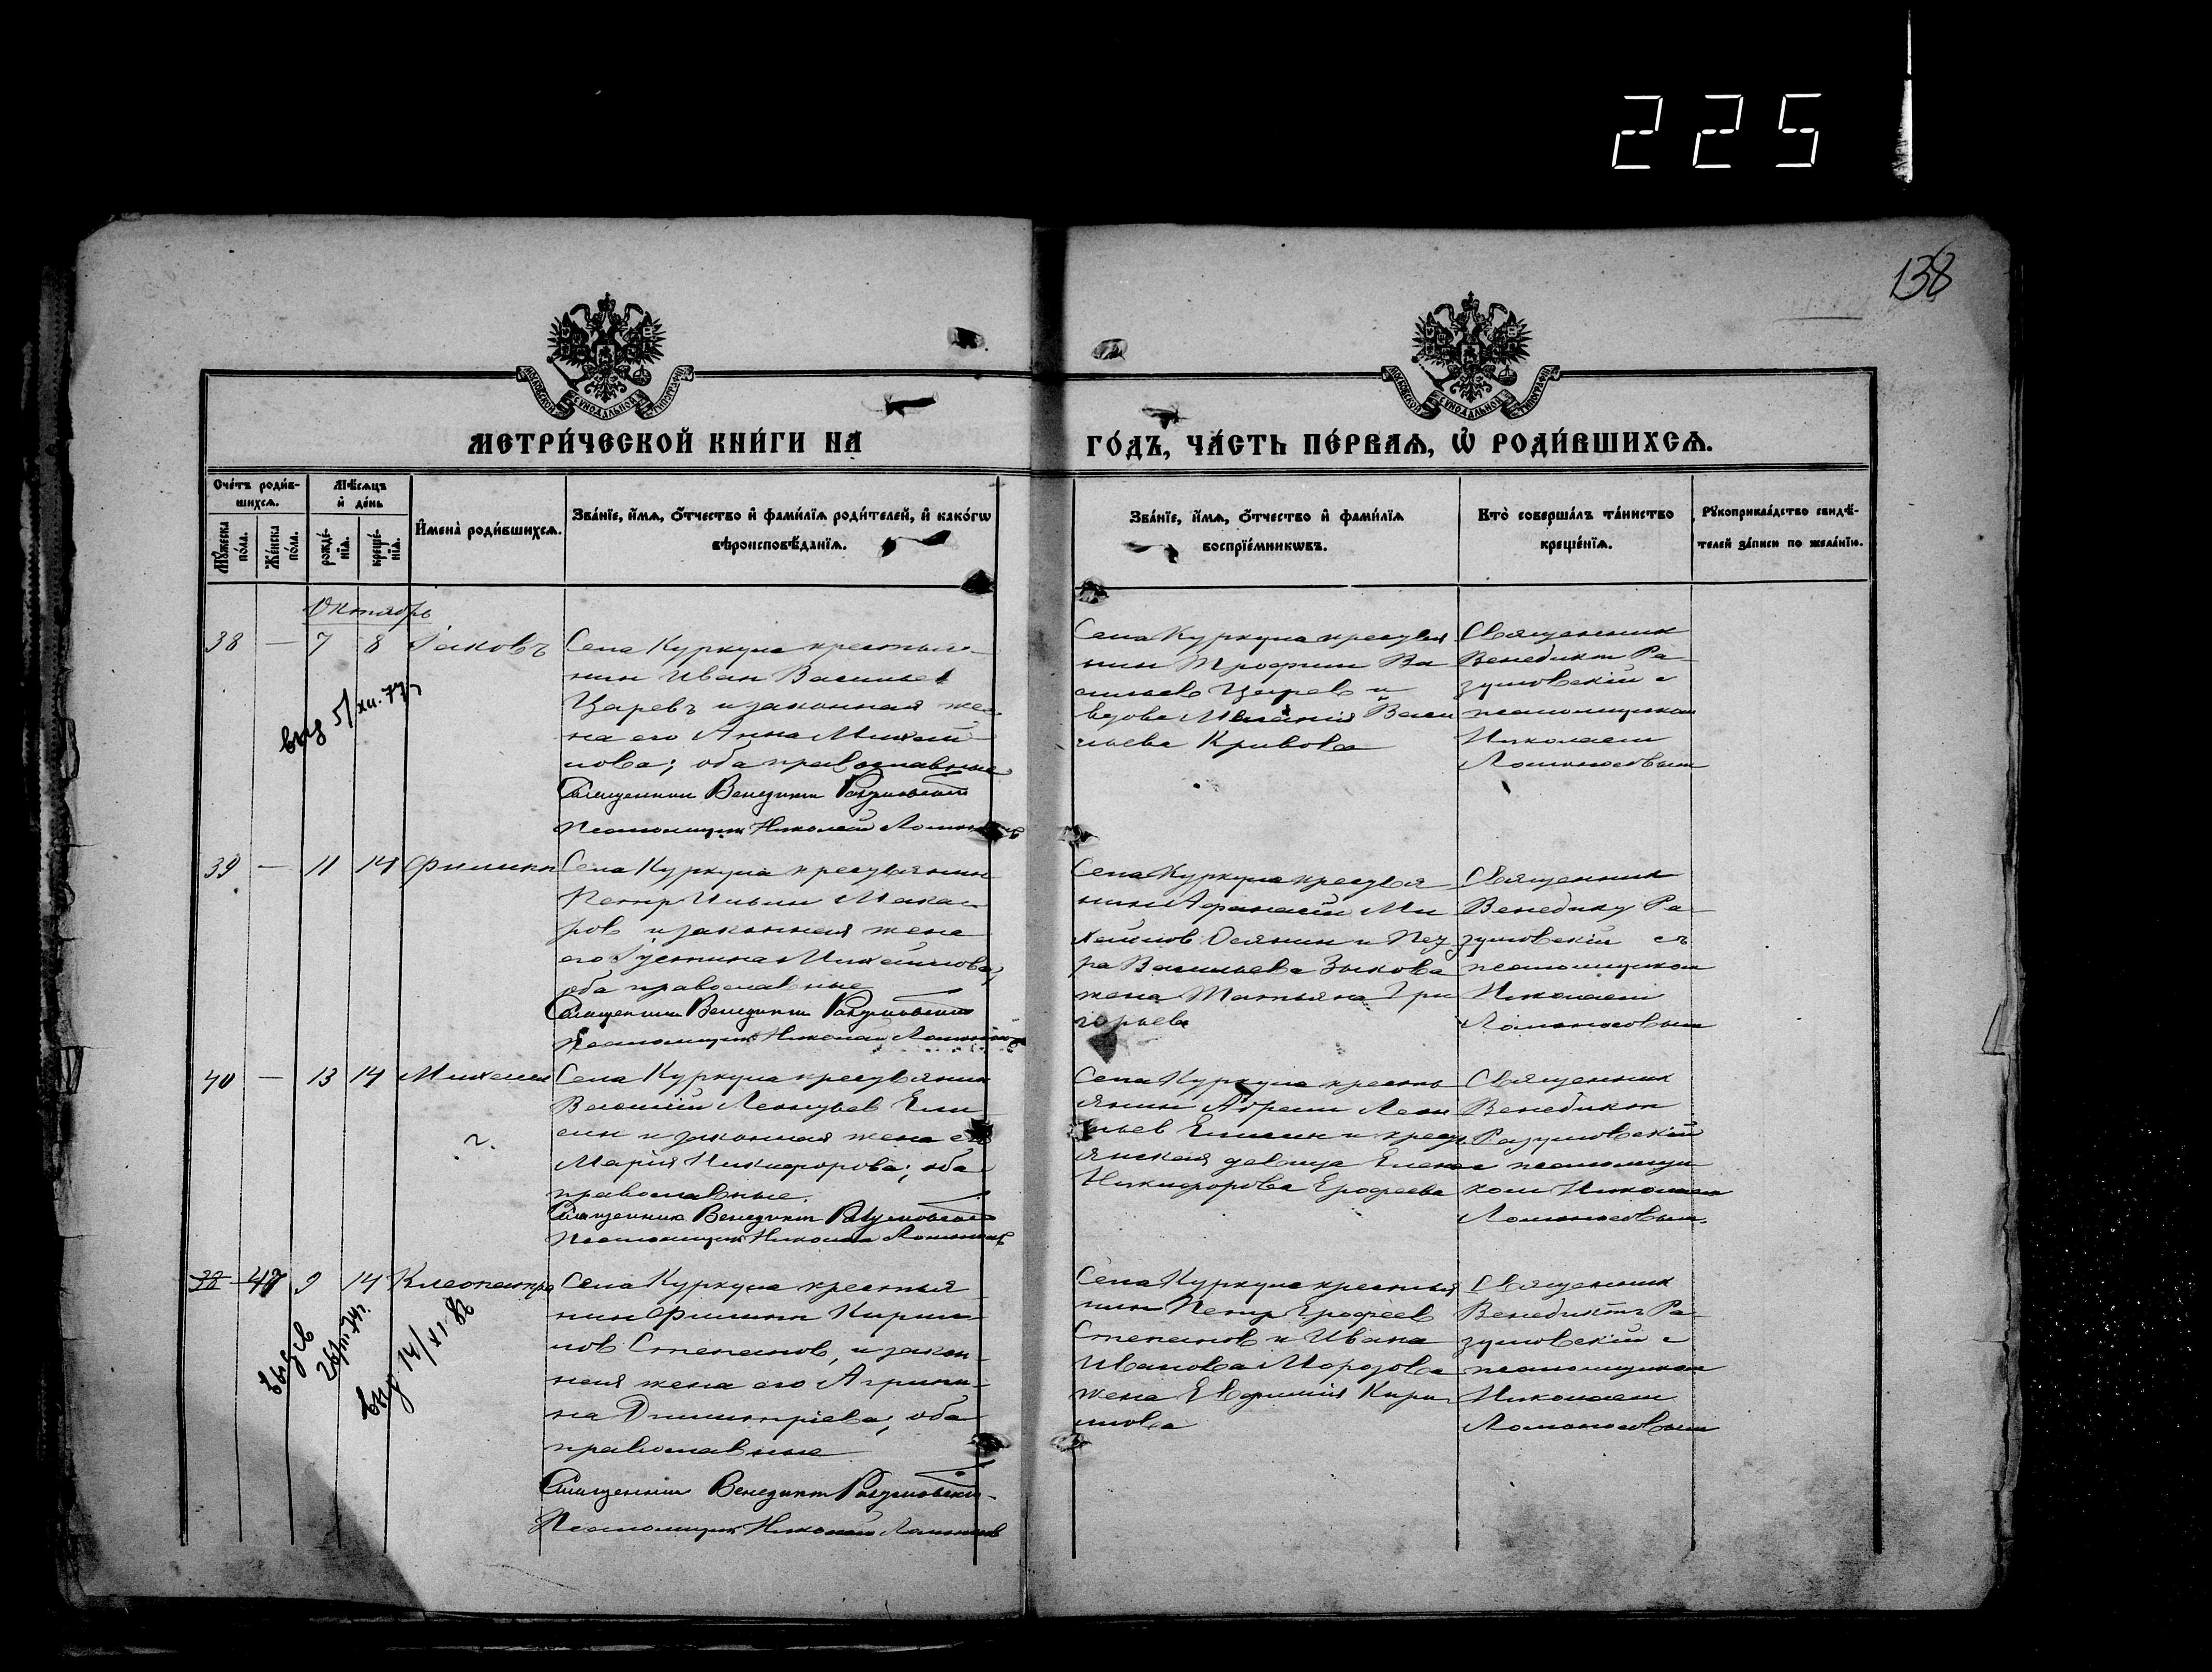 225
138
МЕТРИ́ЧЕСКОЙ КНИ́ГИ НА
ГО́ДЪ, ЧА́СТЬ ПЕ́РВАѦ, Ѡ҆ РОДИ́ВШИХСѦ.
Сче́тъ роди́в-
шихсѧ.
Мꙋ́жеска по́ла.
Же́нска по́ла.
Мѣ́сѧцъ
и҆ де́нь
рожде́-
нїѧ.
креще́-
нїѧ.
И҆мена̀ роди́вшихсѧ.
Зва́нїе, и҆́мѧ, ѻ҆́тчество и҆ фами́лїѧ роди́телей, и҆ како́гѡ
вѣроисповѣ́данїѧ.
Зва́нїе, и҆́мѧ, ѻ҆́тчество и҆ фами́лїѧ
воспрїе́мникѡвъ.
Кто̀ соверша́лъ та́инство
креще́нїѧ.
Рꙋкоприкла́дство свидѣ́-
телей за́писи по жела́нїю.
Октябрь
38 — 7 8 Іаковъ
Села Куркула крестья-
нин Иван Васильев
Царевъ и законная же-
на его Анна Михай-
лова; оба православные
Священник Венедикт Разумовский
Псаломщик Николай Ломоносов
Села Куркула крестья
нин Трофим Ва
сильев Царев и
вдова Васи
льева Кривова
Священник
Венедикт Ра-
зумовскій с
псаломщиком
Николаем
Ломоносовым
выд 5/XII.77г
39 — 11 14 Филипп
Села Куркула крестьянин
Петр Ильин Мака-
ров и законная жена
его Іустина Михайлова,
оба православные
Священник Венедикт Разумовский
Псаломщик Николай Ломоносов
Села Куркула крестья
нин Афанасій Ми
хайлов и Пет
ра Васильева Зыкова
жена Татьяна Гри
горьева
Священник
Венедикт Ра-
зумовскій съ
псаломщиком
Николаем
Ломоносовым
40 — 13 14 Михаил
Села Куркула крестьянин
Василий Леонтьев Ели
син и законная жена его
Марія Никифорова; оба
православные.
Священник Венедикт Разумовский
Псаломщик Николай Ломоносов
Села Куркула кресть
янин Абрам Леон
тьев Елисин и крест
янская девица Елена
Никифорова Ерофеева
Священник
Венедикт
Разумовскій
с псаломщи
ком Николаем
Ломоносовым.
?
9 14 Клеопатра
Села Куркула крестья
нин Филипп Кирил
лов Степанов, и закон-
ная жена его Агрипи-
на Димитріева, оба
православные
Священник Венедикт Разумовский
Псаломщик Николай Ломоносов
Села Куркула крестья
нин Петр Ерофеев
Степанов и Ивана
Иванова Морозова
жена Евфимія Кири
лова
Священник
Венедиктъ Ра-
зумовскій с
псаломщиком
Николаем
Ломоносовым
выд 14/XI.86